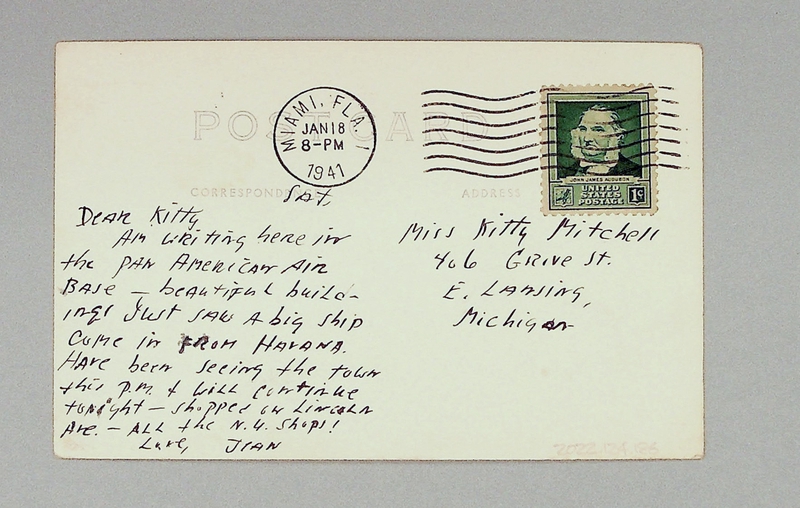 POST CARD
MIAMI, FLA. 1
JAN 18
8-PM
1941
JOHN JAMES AUDUBON
UNITED
STATES
POSTAGE
1¢
CORRESPONDENCE
ADDRESS
Sat
Dear Kitty
Am writing here in
the Pan American Air
Base – beautiful build-
ings Just saw a big ship
come in from Havana.
Have been seeing the town
this p.m. & will continue
tonight – shopped on Lincoln
Ave. – all the N.Y. shops!
Love, Jean
Miss Kitty Mitchell
406 Grove St.
E. Lansing,
Michigan